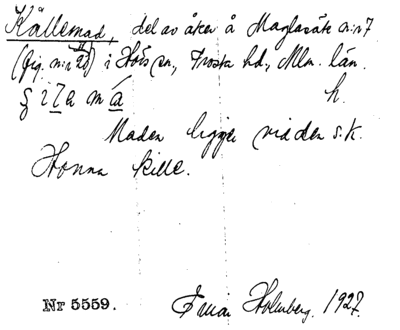 Källemad, del av åker å Maglasäte n:r 7
(fig. n:r 28) i Hörs sn, Frosta hd, Mlm. län.
h.
Maden ligger vid den s.k.
Honna kille.
Nr 5559. Holmberg. 1927.